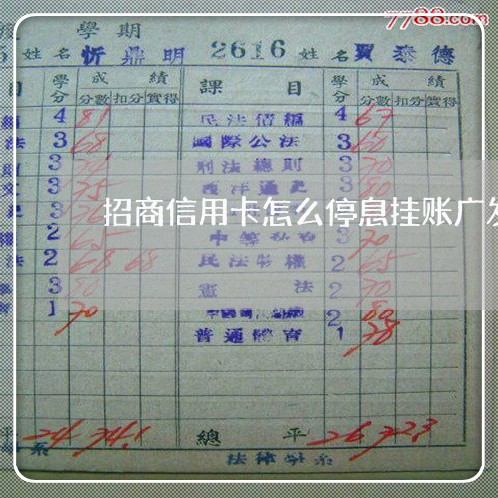 7788.com
度 學期
5 姓名 忻鼎明 2616 姓名 賈泰德
目 學分 成績 課目 學分 成績
分數 扣分 實得 分數 扣分 實得
編 4 81 民法債編 4 67
法 3 68 國際公法 3 60
則 3 刑法總則 3 70
文 3 75 西洋通史 3 80
招商信用卡怎么停息挂账广发
2 65 中等 3 70
法 2 68 68 民法物權 2 65
3 80 憲法 2 70
育 1 70 中國 2 80
普通體育 1 78
平 24 74.1 總平 26 72.3
系 法律學系